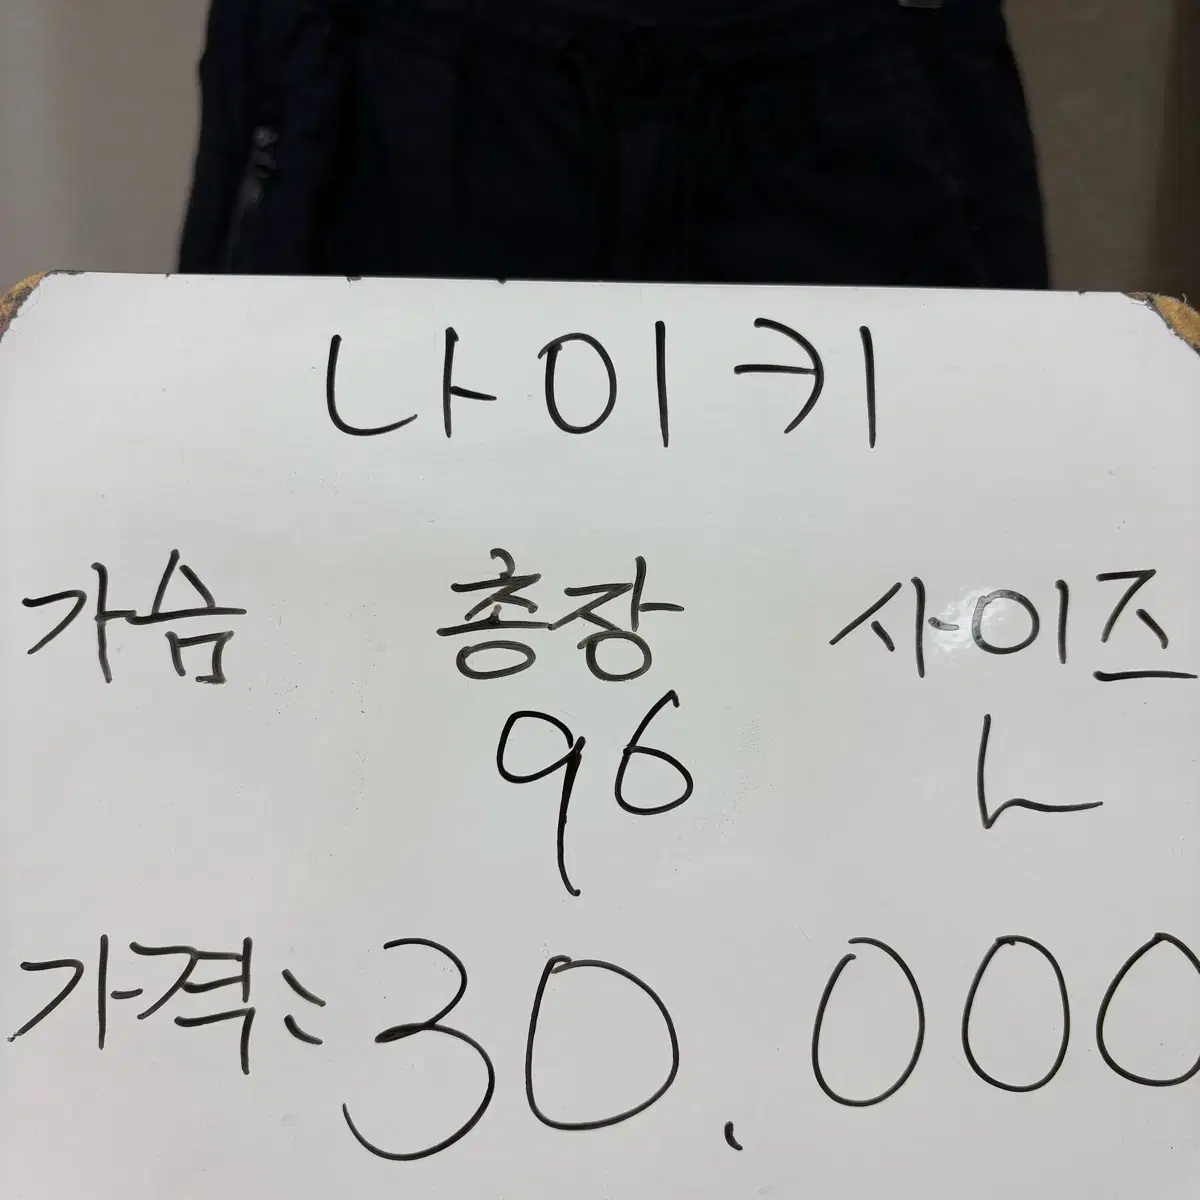 나이키
가슴 총장 사이즈
96 L
가격: 30.000